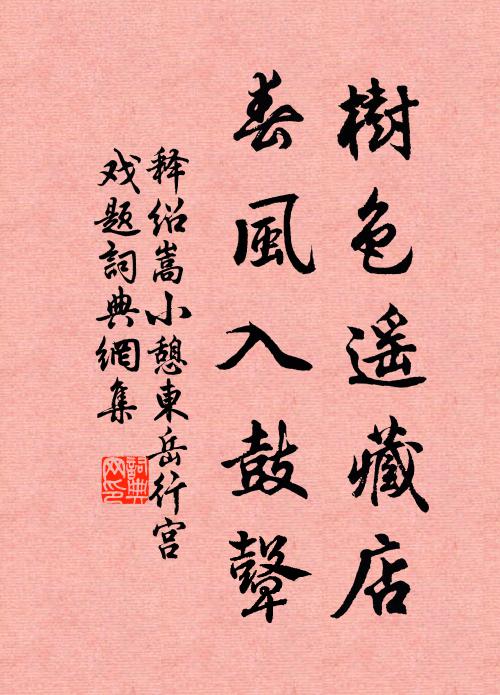 樹色遥藏店
春風入鼓鼙
释绍嵩小憩東岳行宫
戏题詞典網集
詞典
网印